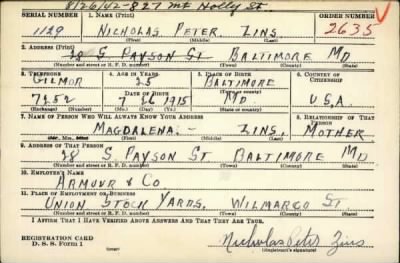 8/26/42-827 Mt Holly St.
SERIAL NUMBER 1. NAME (Print) ORDER NUMBER
1129 NICHOLAS PETER ZINS 2635
(First) (Middle) (Last)
2. ADDRESS (Print)
28 S PAYSON ST BALTIMORE MD
(Number and street or R. F. D. number) (Town) (County) (State)
3. TELEPHONE 4. AGE IN YEARS 5. PLACE OF BIRTH 6. COUNTRY OF CITIZENSHIP
GILMOR 25 BALTIMORE
DATE OF BIRTH (Town or county)
7252 7 1915 MD U.S.A.
(Exchange) (Number) (Mo.) (Day) (Yr.) (State or country)
7. NAME OF PERSON WHO WILL ALWAYS KNOW YOUR ADDRESS 8. RELATIONSHIP OF THAT PERSON
MAGDALENA - ZINS, MOTHER
(Mr., Mrs., Miss) (First) (Middle) (Last)
9. ADDRESS OF THAT PERSON
28 S PAYSON ST BALTIMORE MD
(Number and street or R. F. D. number) (Town) (County) (State)
10. EMPLOYER'S NAME
ARMOUR & CO.
11. PLACE OF EMPLOYMENT OR BUSINESS
UNION STOCK YARDS, WILMARCO ST.
(Number and street or R. F. D. number) (Town) (County) (State)
I AFFIRM THAT I HAVE VERIFIED ABOVE ANSWERS AND THAT THEY ARE TRUE.
REGISTRATION CARD
D. S. S. Form 1 Nicholas Peter Zins
(Registrant's signature)